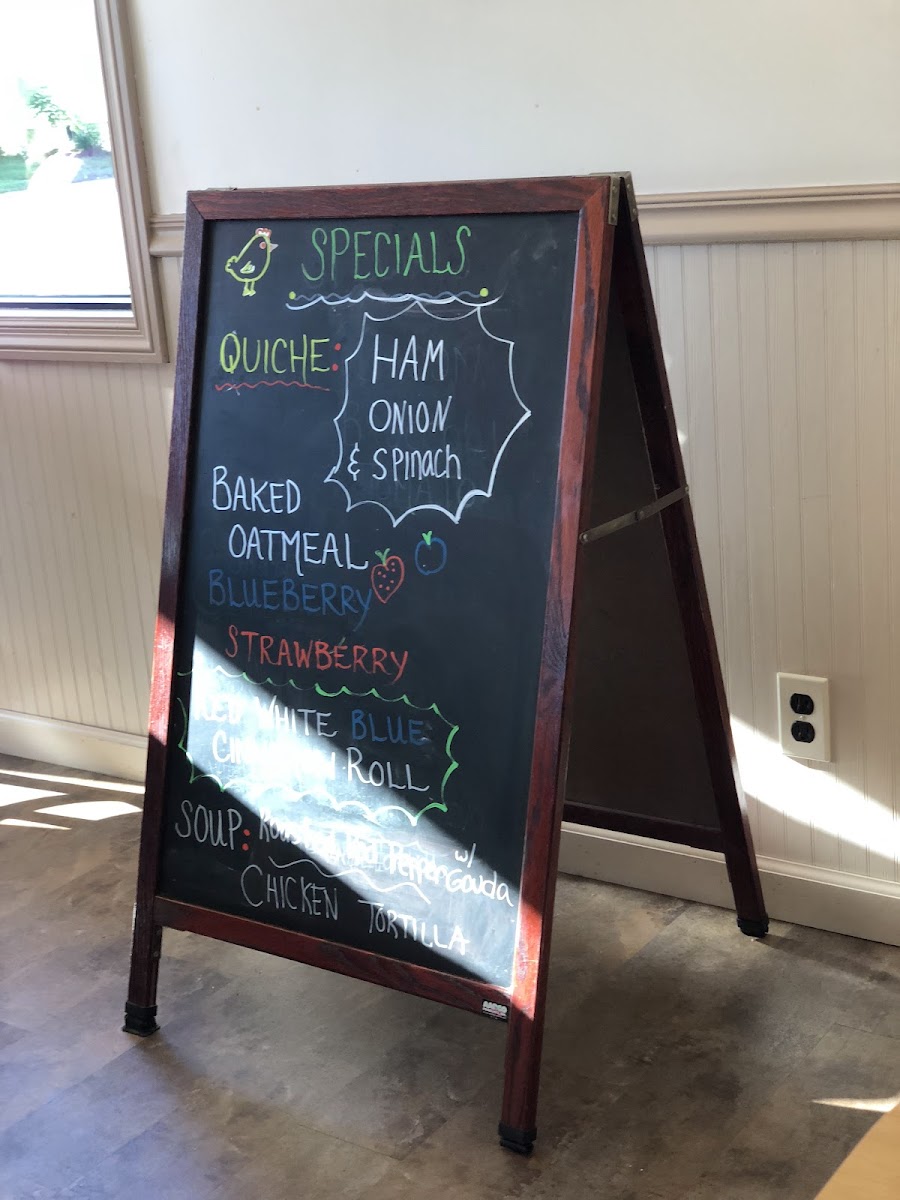 SPECIALS
QUICHE:
HAM
ONION
& SPINACH
BAKED
OATMEAL
BLUEBERRY
STRAWBERRY
RED WHITE BLUE
CINNAMON ROLL
SOUP: Roasted Red Pepper w/ Gouda
CHICKEN TORTILLA